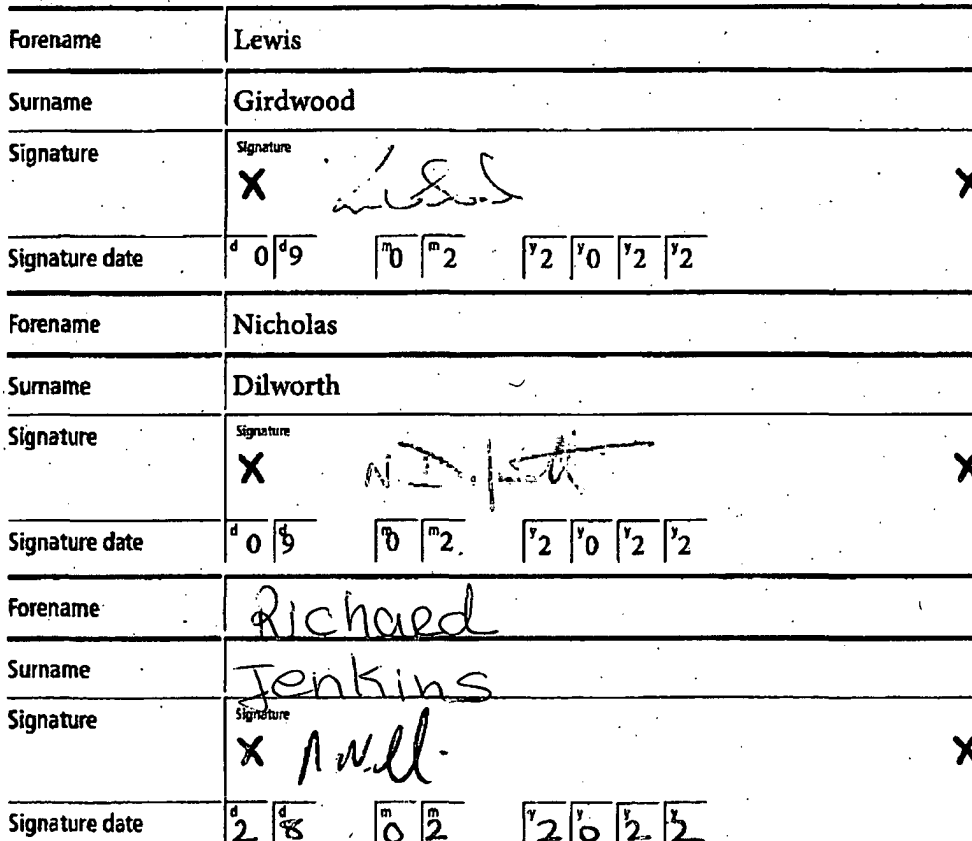 Forename Lewis
Surname Girdwood
Signature Signature
X X
Signature date d0 d9 m0 m2 y2 y0 y2 y2
Forename Nicholas
Surname Dilworth
Signature Signature
X N. Dilworth X
Signature date d0 d9 m0 m2 y2 y0 y2 y2
Forename Richard
Surname Jenkins
Signature Signature
X X
Signature date d2 d8 m0 m2 y2 y0 y2 y2